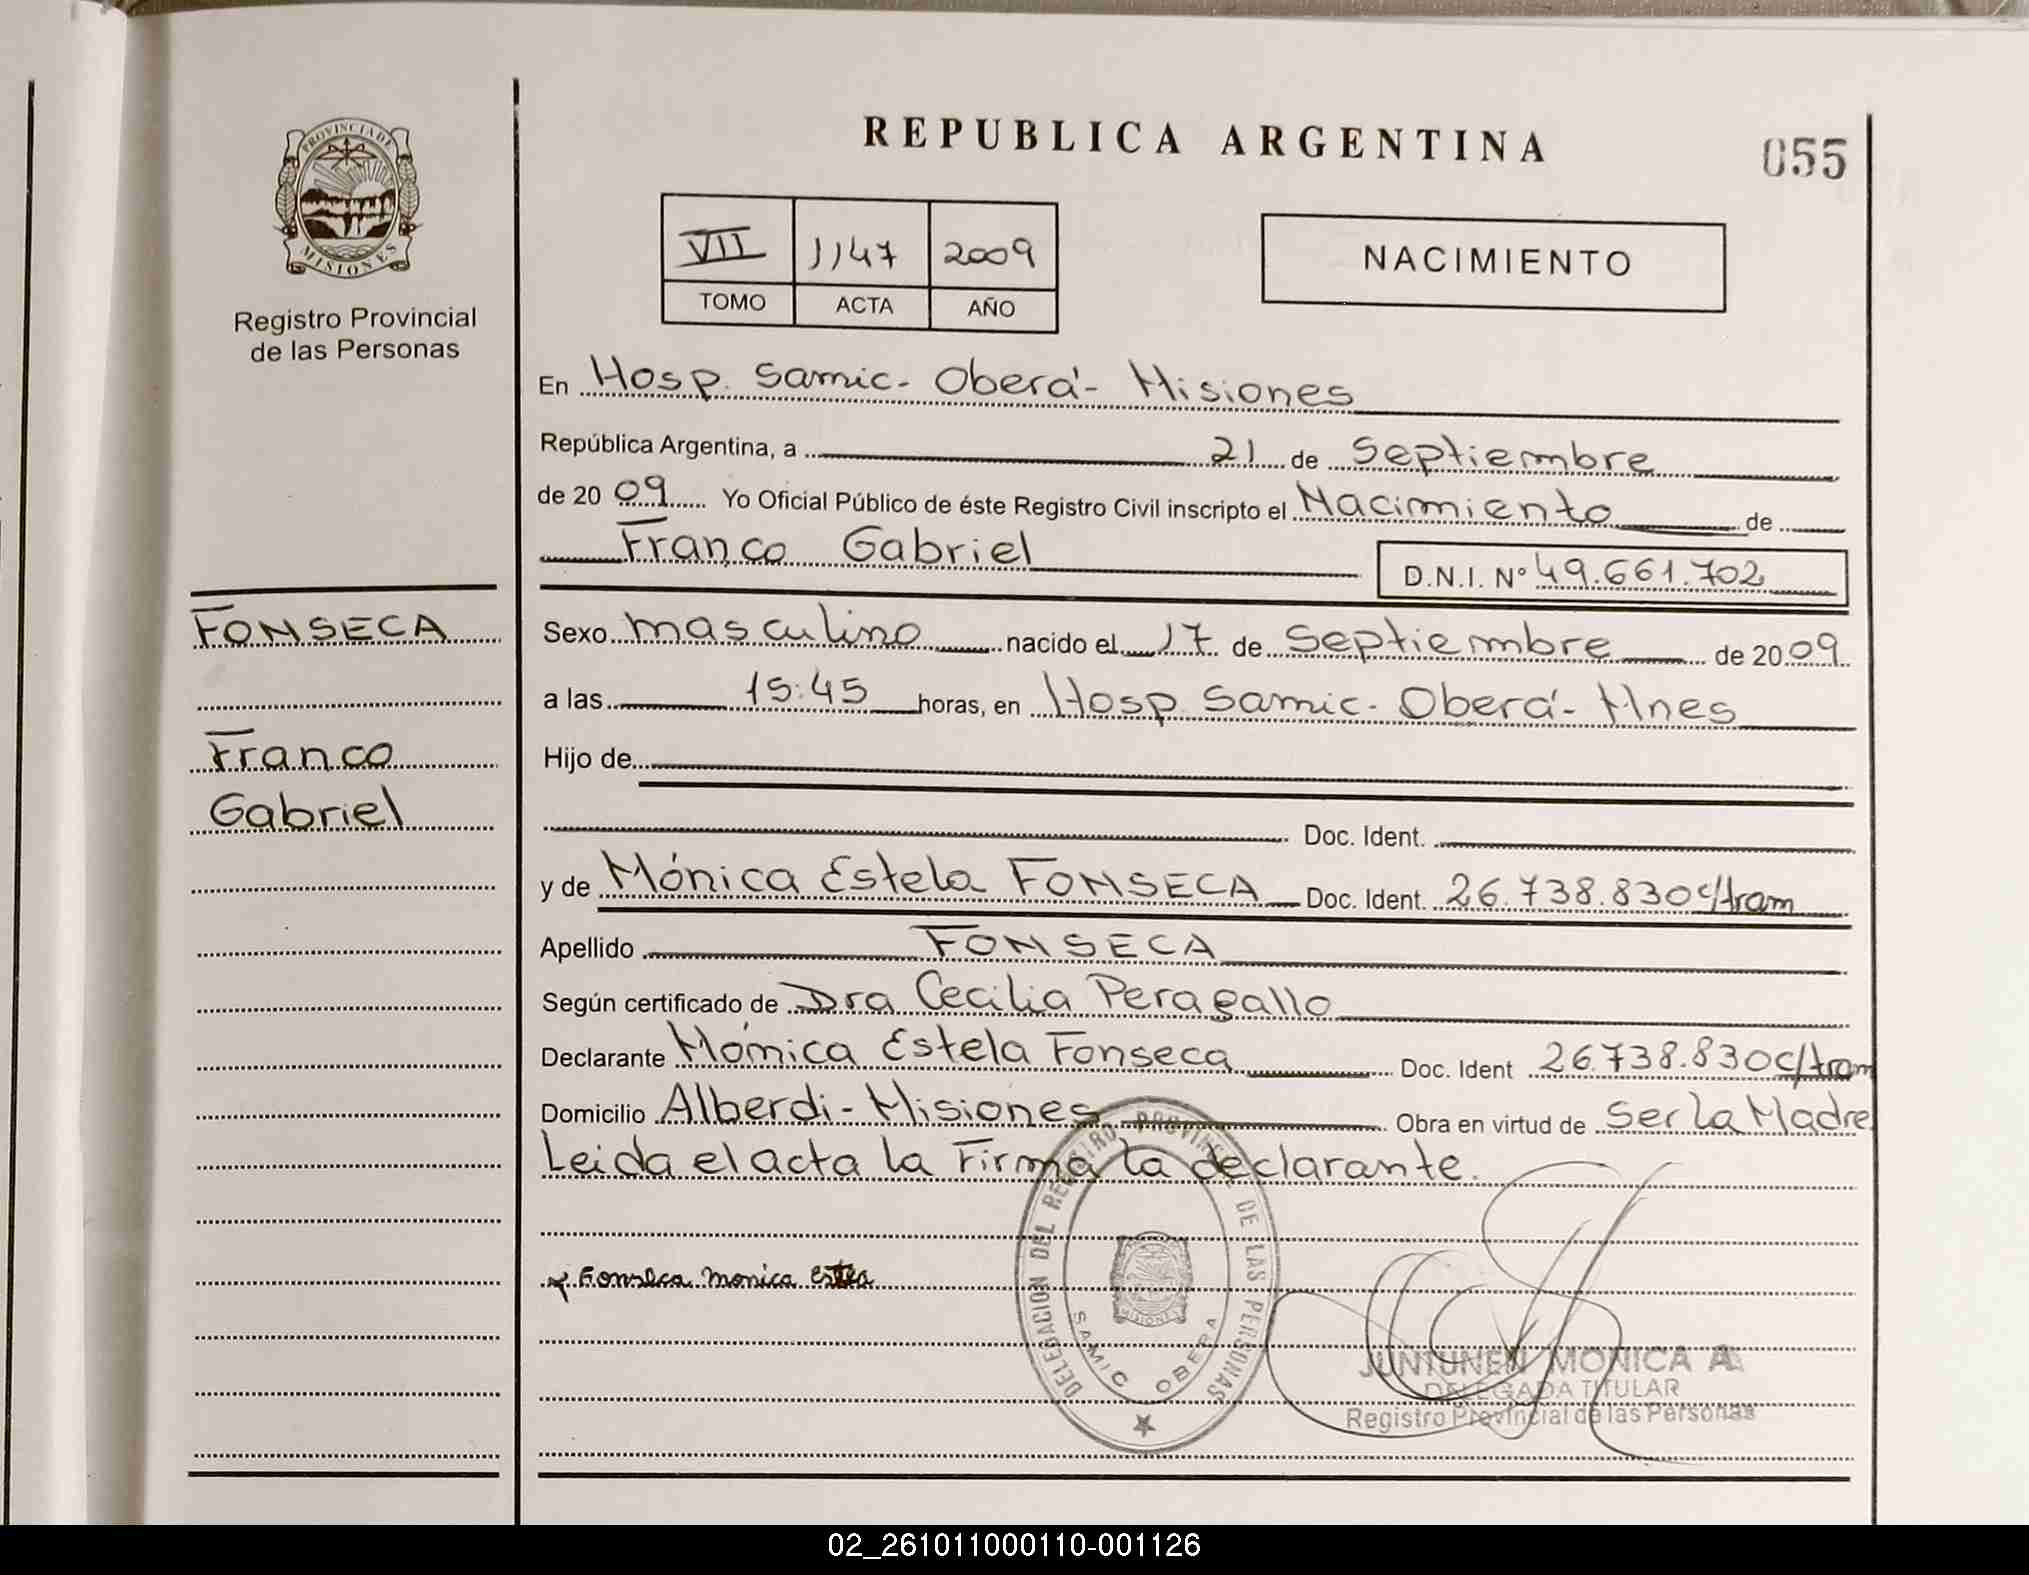 PROVINCIA DE
MISIONES
Registro Provincial
de las Personas
FONSECA
Franco
Gabriel
REPUBLICA ARGENTINA
055
VII 1147 2009
TOMO ACTA AÑO
NACIMIENTO
En Hosp. Samic - Oberá - Misiones
República Argentina, a 21 de Septiembre
de 20 09 Yo Oficial Público de éste Registro Civil inscripto el Nacimiento de
Franco Gabriel
D.N.I. Nº 49.661.702
Sexo masculino nacido el 17 de Septiembre de 20 09
a las 15:45 horas, en Hosp. Samic - Oberá - Mnes
Hijo de
Doc. Ident.
y de Mónica Estela FONSECA Doc. Ident. 26.738.830 c/tram
Apellido FONSECA
Según certificado de Dra Cecilia Peragallo
Declarante Mónica Estela Fonseca Doc. Ident 26.738.830 c/tram
Domicilio Alberdi - Misiones Obra en virtud de Ser La Madre
Leida el acta la Firma la declarante.
Fonseca monica
DELEGACION DEL REGISTRO PROVINCIAL DE LAS PERSONAS
SAMIC OBERA
MISIONES
JUNTUNEN MONICA A
DELEGADA TITULAR
Registro Provincial de las Personas
02_261011000110-001126